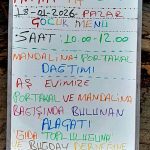 18-01-2026 PAZAR
ÇOCUK MENÜ
SAAT: 10.00-12.00
MANDALİNA+PORTAKAL
DAĞITIMI
AŞ EVİMİZE
PORTAKAL VE MANDALİNA
BAĞIŞINDA BULUNAN
ALAÇATI
GIDA TOPLULUĞUNA
VE BUĞDAY DERNEĞİNE